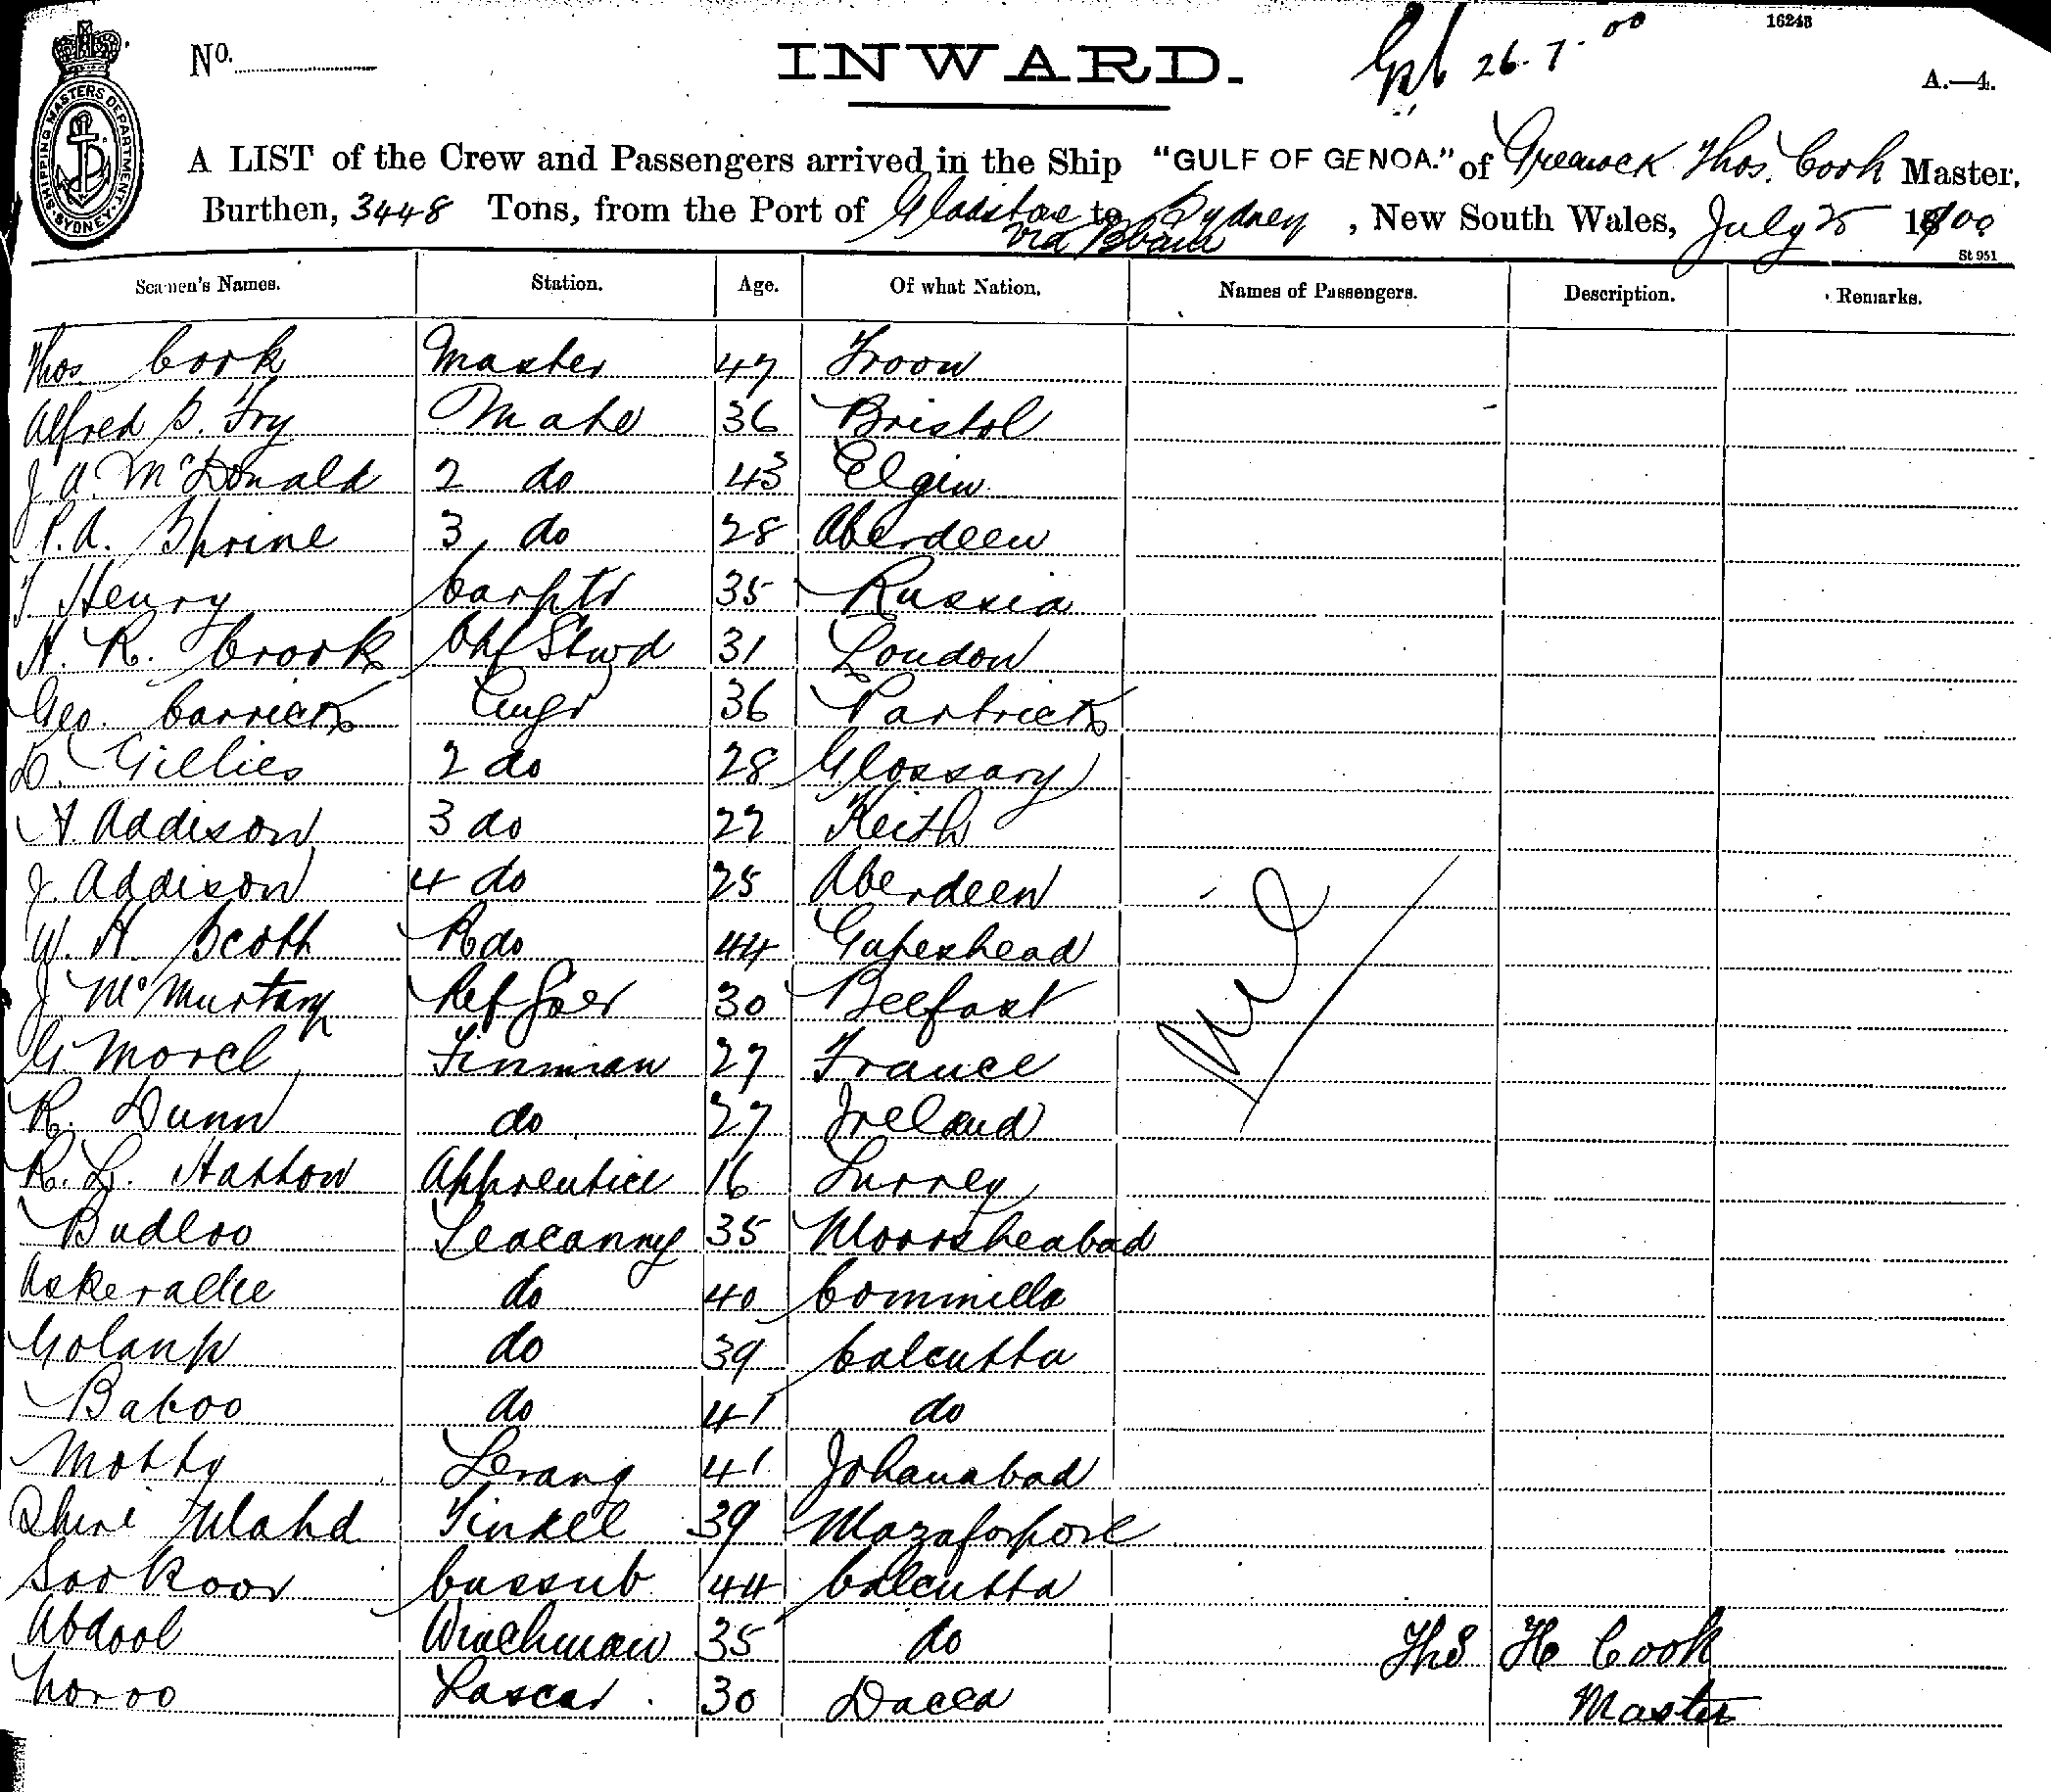 16243
No.
INWARD.
26.7.00
A.—4.
SHIPPING MASTERS DEPARTMENT SYDNEY
A LIST of the Crew and Passengers arrived in the Ship "GULF OF GENOA." of Greenock Thos. Cook Master,
Burthen, 3448 Tons, from the Port of Gladstone to Sydney, New South Wales, July 25 1900
via Bbane
St 951
Seamen's Names. Station. Age. Of what Nation. Names of Passengers. Description. Remarks.
Thos Cook Master 47 Troon
Alfred S. Fry Mate 36 Bristol
J. A. McDonald 2 do 43 Elgin
P. A. Shrine 3 do 28 Aberdeen
J. Henry Carptr 35 Russia
H. R. Crook Chf Stwd 31 London
Geo. Carrick Engr 36 Partrick
D. Gillies 2 do 28 Glossary
A. Addison 3 do 22 Keith
J. Addison 4 do 25 Aberdeen
W. H. Scott R do 44 Gateshead
J. McMurtary Ref 30 Belfast
Nil
G. Morel Finman 27 France
R. Dunn do 27 Ireland
R. L. Hatton Apprentice 16 Surrey
Budloo Seacanny 35 Moorsheabad
Askerallie do 40 Commilla
Golamp do 39 Calcutta
Baboo do 41 do
Motty Serang 41 Johanabad
Mahd Tindel 39 Mozaforpore
Sookoor Cassub 44 Calcutta
Abdool Winchman 35 do Ths H Cook
Noroo Lascar. 30 Dacca Master